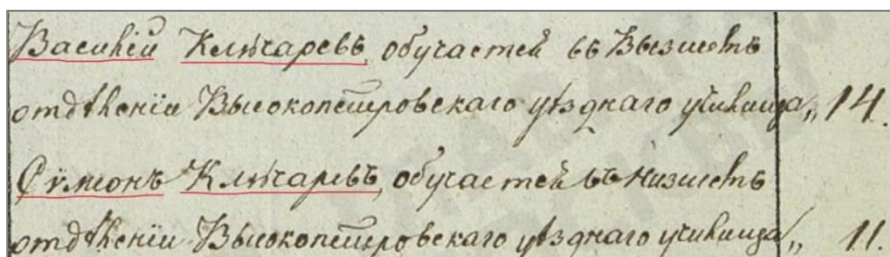 Василій Ключаревъ, обучается въ Высшемъ
отдѣленіи Высокопетровскаго уѣзднаго училища„ 14.
Сѵмеонъ Ключаревъ, обучается въ Низшемъ
отдѣленіи Высокопетровскаго уѣзднаго училища„ 11.